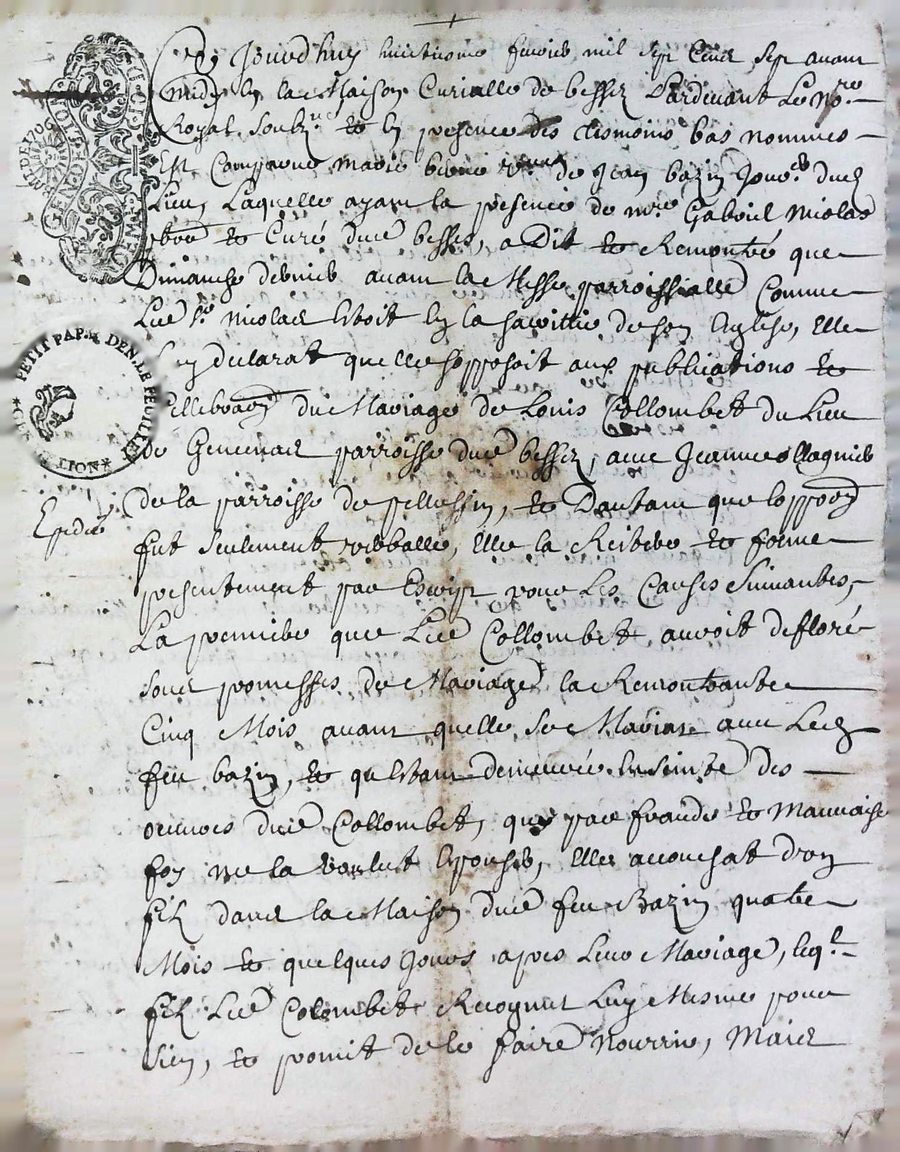 Ce Jourdhuy huictieme fevrier mil sept Cent sept avant
midy En la Maison Curialle de bessey Pardevant Le No.re
Royal Soub.ne et En presence des tesmoins bas nommes
Est Comparue marie v.ve de Jean bazin Jour.er dud
Lieu, Laquelle ayant la presence de m.re Gabriel Nicolas
pbre et Curé dud bessey, a Dit et Remontré que
Dimanche dernier avant la Messe parroissialle Comme
Led s.r Nicolas Estoit En la sacristie de son Eglise, Elle
Luy declarat quelle sopposoit aux publications et
Cellebraon du Mariage de Louis Collombet du Lieu
de parroisse dud bessey, avec Jeanne Magnier
Expedié
de la parroisse de pellussin, et Dautant que loppoon
fut seulement verballe, Elle la Reitere et forme
presentement par Escript pour Les Causes Suivantes,
La premiere que Led Collombet avoit defloré
sous promesses de Mariage la Remontrante
Cinq Mois avant quelle se Mariat avec Led
feu bazin, et questant demeurée Enceinte des
oeuvres dud Collombet, qui par fraude et Mauvaise
foy ne la voulut Epouser, Elle accouchat d'un
fils dans la Maison dud feu Bazin quatre
Mois et quelques Jours apres Leur Mariage, leq.l
fils Led Colombet Recognut Luy Mesme pour
sien, et promit de le faire Nourrir, Mais
GEN DE LION
PETIT PAP. 4 DEN. LE FEUILLET
LION